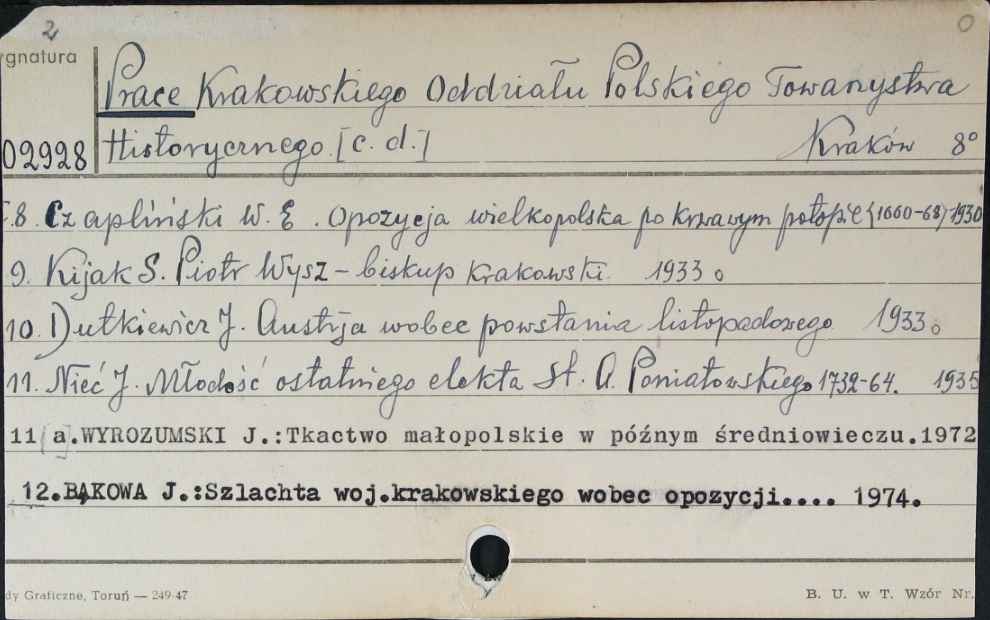 2 0
ygnatura
Prace Krakowskiego Oddziału Polskiego Towarzystwa
02928 Historycznego [c. d.] Kraków 8°
8. Czapliński W. E. Opozycja wielkopolska po krwawym potopie (1660-68) 1930
9. Kijak S. Piotr Wysz - biskup krakowski. 1933
10. Dutkiewicz J. Austrja wobec powstania listopadowego 1933
11. Nieć J. Młodość ostatniego elekta St. A. Poniatowskiego 1732-64. 1935
11[a].WYROZUMSKI J.:Tkactwo małopolskie w późnym średniowieczu.1972
12.BĄKOWA J.:Szlachta woj.krakowskiego wobec opozycji.... 1974.
dy Graficzne, Toruń — 249-47 B. U. w T. Wzór Nr.